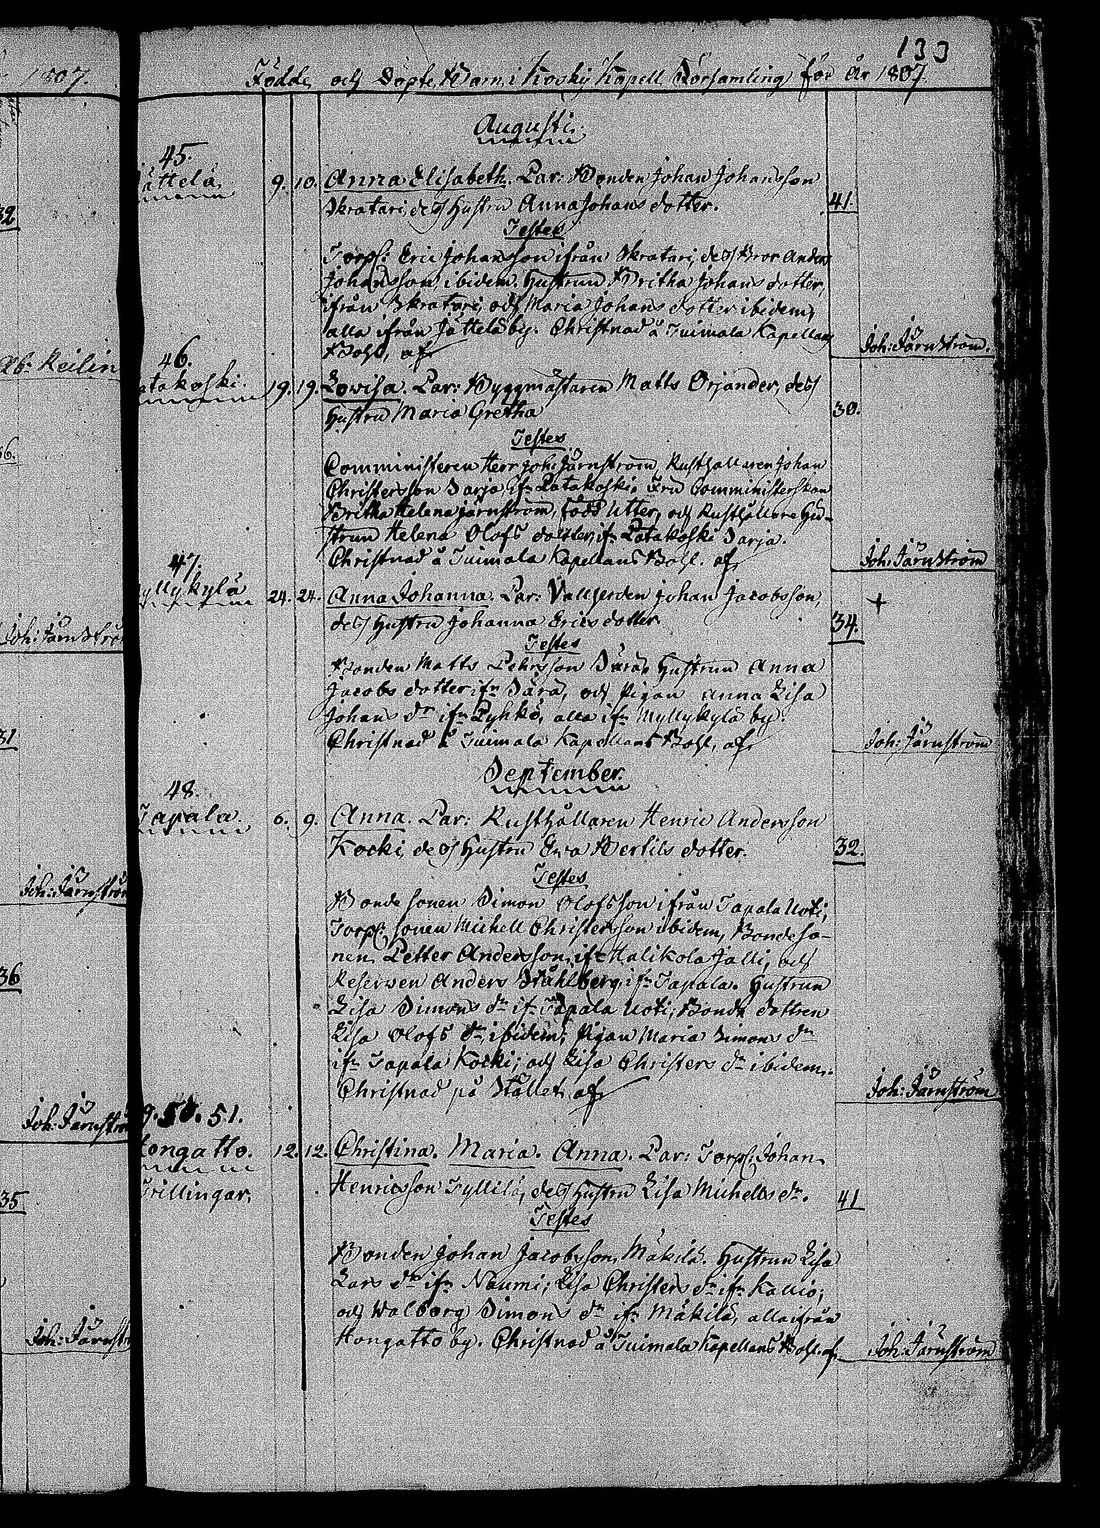 133
1807.
Födde och Döpte Barn i Koskij Kapell Församling för år 1807.
Augusti.
45.
9. 10. Anna Elisabeth. Par: Bonden Johan Johansson
Skratari, dess Hustru Anna Johans dotter.
41.
Testes
Torp: Eric Johansson ifrån Skratari, dess Bror Anders
Johansson, ibidem. Hustrun Britha Johans dotter,
ifrån Skratari, och Maria Johans dotter ibidem,
alla ifrån Jättelä by. Christnad å Tuimala Kapellans
Bohl, af
Joh: Järnström.
46.
19. 19. Lovisa. Par: Byggmästaren Matts Orjander, dess
Hustru Maria Gretha
30.
Testes
Comministeren Herr Joh: Järnström, Rusthållaren Johan
Christersson Sarja ifn Patakoski. Fru Comministerskan
Britha Helena Järnström, född Utter, och Rusthållare Hu-
strun Helena Olofs dotter, ifn Patakoski Sarja.
Christnad å Tuimala Kapellans Bohl. af
Joh: Järnström
47.
24. 24. Anna Johanna. Par: Vallherden Johan Jacobsson,
dess Hustru Johanna Erics dotter
+
34.
Testes
Bonden Matts Pehrsson Hustrun Anna
Jacobs dotter ifn och Pigan Anna Lisa
Johans dr ifn Pyhkö, alla ifn Myllykylä by.
Christnad å Tuimala Kapellans Bohl, af
Joh: Järnström
September.
48.
Tapala.
6. 9. Anna. Par: Rusthållaren Henric Andersson
Kocki, dess Hustru Ewa Bertils dotter.
32.
Testes
Bonde sonen Simon Olofsson ifrån Tapala Uoti,
Torp: sonen Michell Christersson ibidem, Bonde so-
nen Petter Andersson, ifn Halikola Jalli, och
Reserwen Anders Ståhlberg, ifn Tapala. Hustrun
Lisa Simons dr ifn Tapala Uoti; Bonde dottren
Lisa Olofs dr ibidem; Pigan Maria Simons dr
ifn Tapala Kocki; och Lisa Christers dr ibidem.
Christnad på Stället, af
Joh: Järnström
9. 50. 51.
12. 12. Christina. Maria. Anna. Par: Torp: Johan
Henricsson Tyllilä, dess Hustru Lisa Michells dr.
41
Trillingar.
Testes
Bonden Johan Jacobsson, Mäkilä. Hustrun Lisa
Lars dr ifn Naumi; Lisa Christers dr ifn Kallio;
och Walborg Simons dr ifn Mäkilä, alla ifrån
Hongatto by. Christnad å Tuimala Kapellans Bohl. af
Joh: Järnström